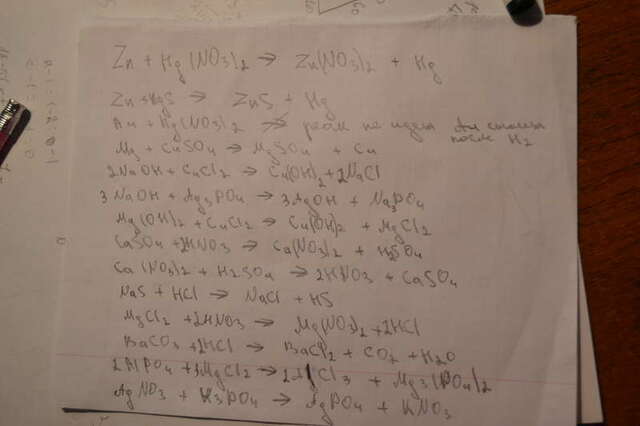 Zn + Hg(NO3)2 → Zn(NO3)2 + Hg
Zn + HgS → ZnS + Hg
Au + Hg(NO3)2 ↛ реак не идет Au стоит после H2
Mg + CuSO4 → MgSO4 + Cu
2NaOH + CuCl2 → Cu(OH)2 + 2NaCl
3NaOH + Ag3PO4 → 3AgOH + Na3PO4
Mg(OH)2 + CuCl2 → Cu(OH)2 + MgCl2
CaSO4 + 2HNO3 → Ca(NO3)2 + H2SO4
Ca(NO3)2 + H2SO4 → 2HNO3 + CaSO4
NaS + HCl → NaCl + HS
MgCl2 + 2HNO3 → Mg(NO3)2 + 2HCl
BaCO3 + 2HCl → BaCl2 + CO2 + H2O
2AlPO4 + 3MgCl2 → 2AlCl3 + Mg3(PO4)2
AgNO3 + K3PO4 → AgPO4 + KNO3